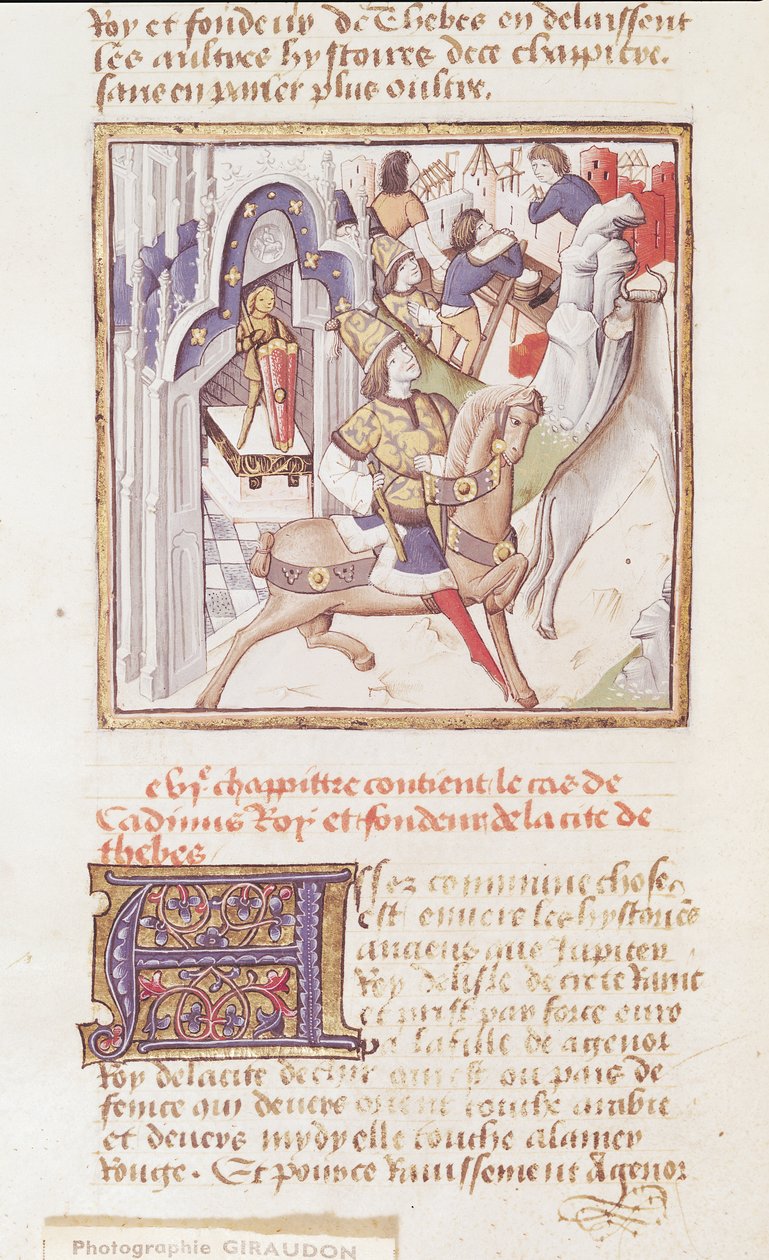 Roy et fondeur de Thebes en delaissent
les aultres hystoires de ce chappitre.
sans en parler plus oultre.
e vj.e chappittre contient le cas de
Cadmus Roy et fondeur de la cite de
thebes
Assez commune chose
est envers les hystoriens
anciens que Jupiter
Roy delisle de crete Ravit
et prist par force euro
pa la fille de agenor
Roy de la cite de thir qui est ou pais de
fenice qui devers orient touche arabie
et devers mydy elle touche a la mer
Rouge. Et pour ce Ravissement Agenor
Photographie GIRAUDON